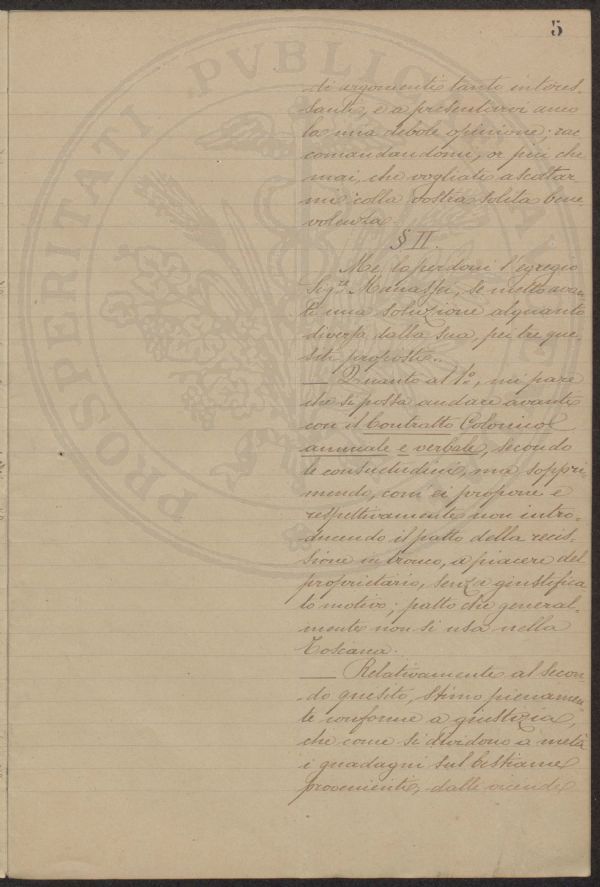 5
di argomenti tanto interes-
santi, e a presentarvi anco
la mia debole opinione; rac
comandandomi, or più che
mai, che vogliate ascoltar-
mi colla vostra solita bene
volenza.
§ II.
Me lo perdoni l'egregio
Sig.r Manassei, se metto avan-
ti una soluzione alquanto
diversa dalla sua, pei tre que-
siti proposti.
— Quanto al 1º, mi pare
che si possa andare avanti
con il Contratto Colonico
annuale e verbale, secondo
le consuetudini, ma soppri-
mendo, com'ei propone e
respettivamente non intro-
ducendo il patto della recis-
sione in tronco, a piacere del
proprietario, senza giustifica
to motivo; patto che general-
mente non si usa nella
Toscana.
— Relativamente al secon-
do quesito, stimo pienamen-
te conforme a giustizia,
che come si dividono a metà
i guadagni sul bestiame
provenienti, dalle vicende
PROSPERITATI PVBLICAE